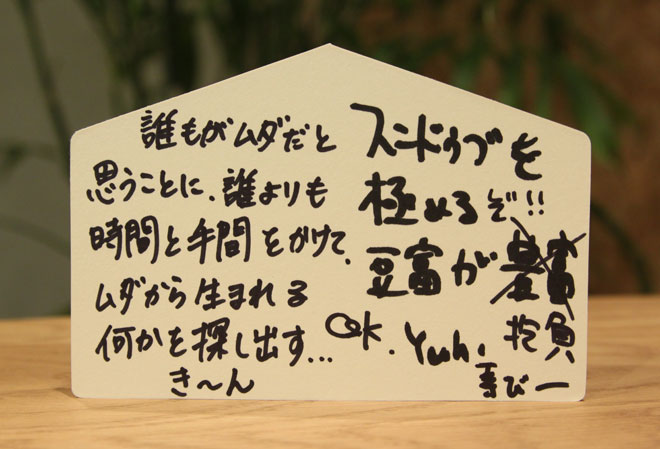 誰もがムダだと
思うことに、誰よりも
時間と手間をかけて、
ムダから生まれる
何かを探し出す...
き〜ん
スンドゥブを
極めるぞ!!
豆富が豊富
抱負
Ok. Yuhi